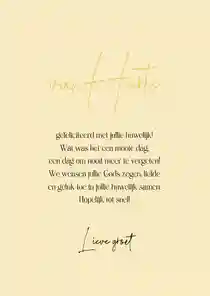 van Harte
gefeliciteerd met jullie huwelijk!
Wat was het een mooie dag,
een dag om nooit meer te vergeten!
We wensen jullie Gods zegen, liefde
en geluk toe in jullie huwelijk samen
Hopelijk tot snel!
Lieve groet